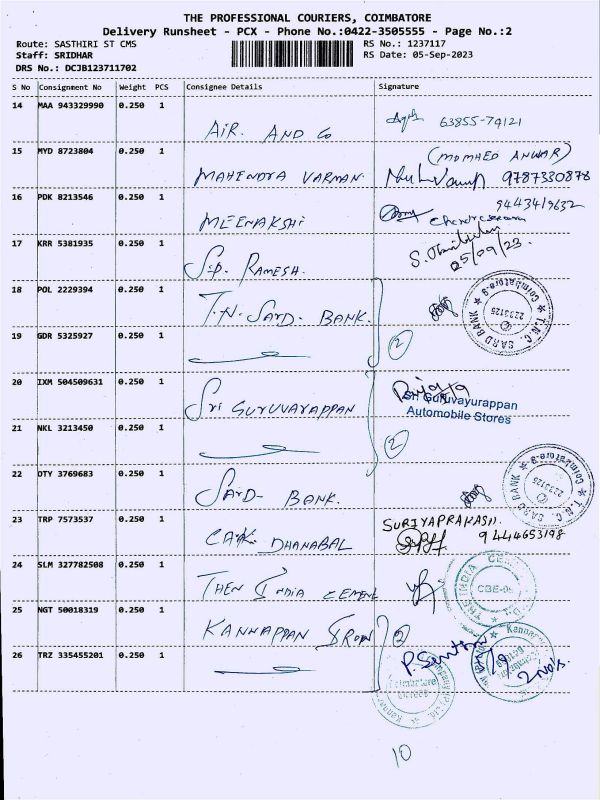 THE PROFESSIONAL COURIERS, COIMBATORE
Delivery Runsheet - PCX - Phone No.:0422-3505555 - Page No.:2
Route: SASTHIRI ST CMS RS No.: 1237117
Staff: SRIDHAR RS Date: 05-Sep-2023
DRS No.: DCJB123711702
S No Consignment No Weight PCS Consignee Details Signature
14 MAA 943329990 0.250 1 AIR. AND Co 63855-74121
15 MYD 8723804 0.250 1 MAHENDRA VARMAN. (MOMHED ANWAR) 9787330878
16 PDK 8213546 0.250 1 MEENAKSHI 9443419632
17 KRR 5381935 0.250 1 S.P. RAMESH. 05/09/23.
18 POL 2229394 0.250 1 T.N. SARD. BANK. T.N.C. SARD BANK Coimbatore-9 2233125
19 GDR 5325927 0.250 1 2
20 IXM 504509631 0.250 1 Sri GURUVAYARAPPAN Sri Guruvayurappan
Automobile Stores
21 NKL 3213450 0.250 1 2
22 OTY 3769683 0.250 1 SARD- BANK. T.N.C. SARD BANK Coimbatore-9 2233125
23 TRP 7573537 0.250 1 DHANABAL SURIYAPRAKASH. 9444653198
24 SLM 327782508 0.250 1 THEN INDIA CEMENT
25 NGT 50018319 0.250 1 KANNAPPAN IRON 2
26 TRZ 335455201 0.250 1 2 No's.
10